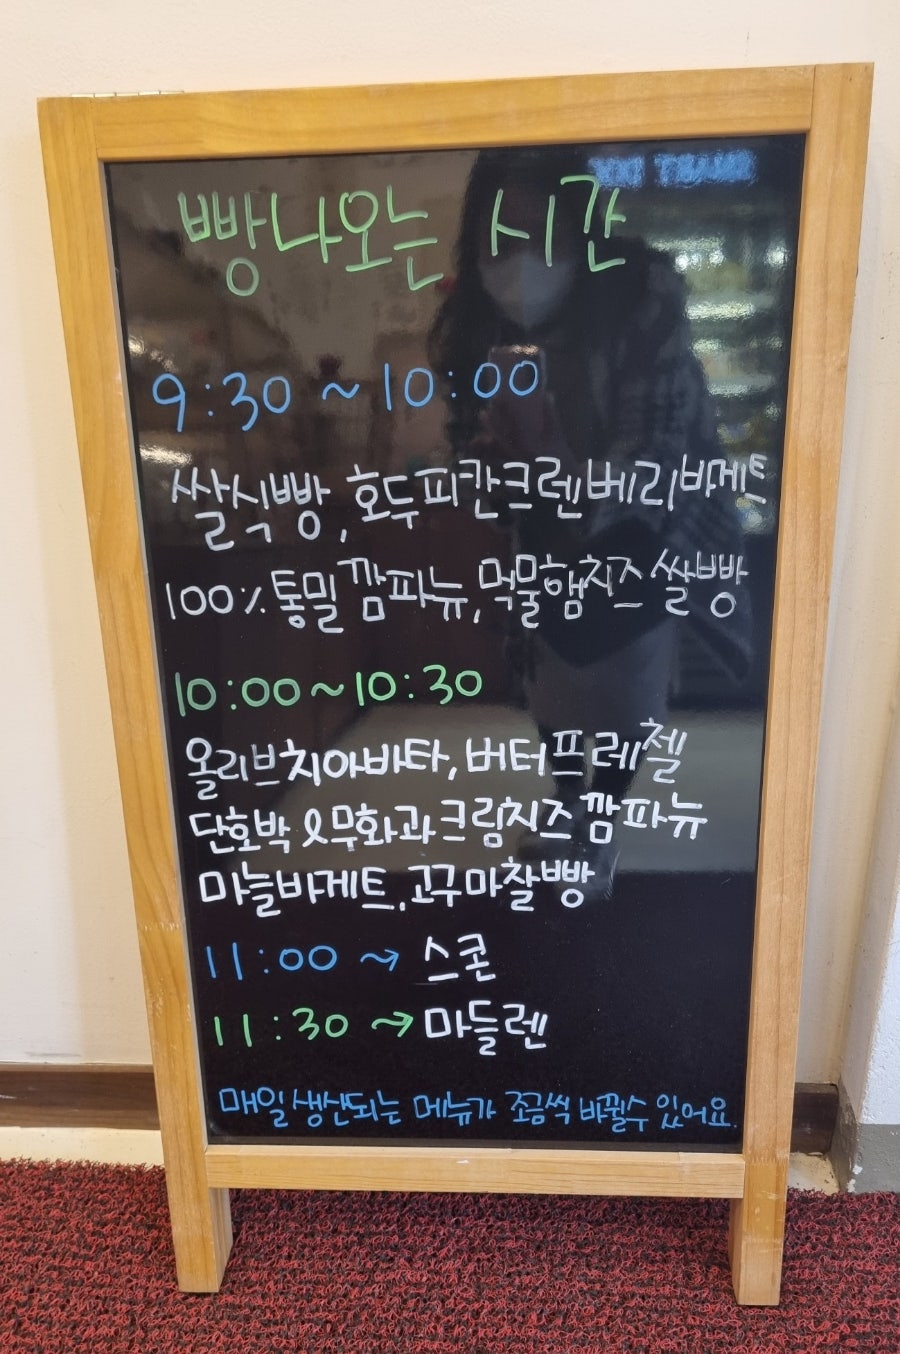 빵나오는 시간
9:30 ~ 10:00
쌀식빵, 호두피칸크렌베리바게트
100% 통밀깜파뉴, 먹물햄치즈쌀빵
10:00~10:30
올리브치아바타, 버터프레첼
단호박&무화과크림치즈깜파뉴
마늘바게트, 고구마찰빵
11:00 → 스콘
11:30 → 마들렌
매일 생산되는 메뉴가 조금씩 바뀔수 있어요.